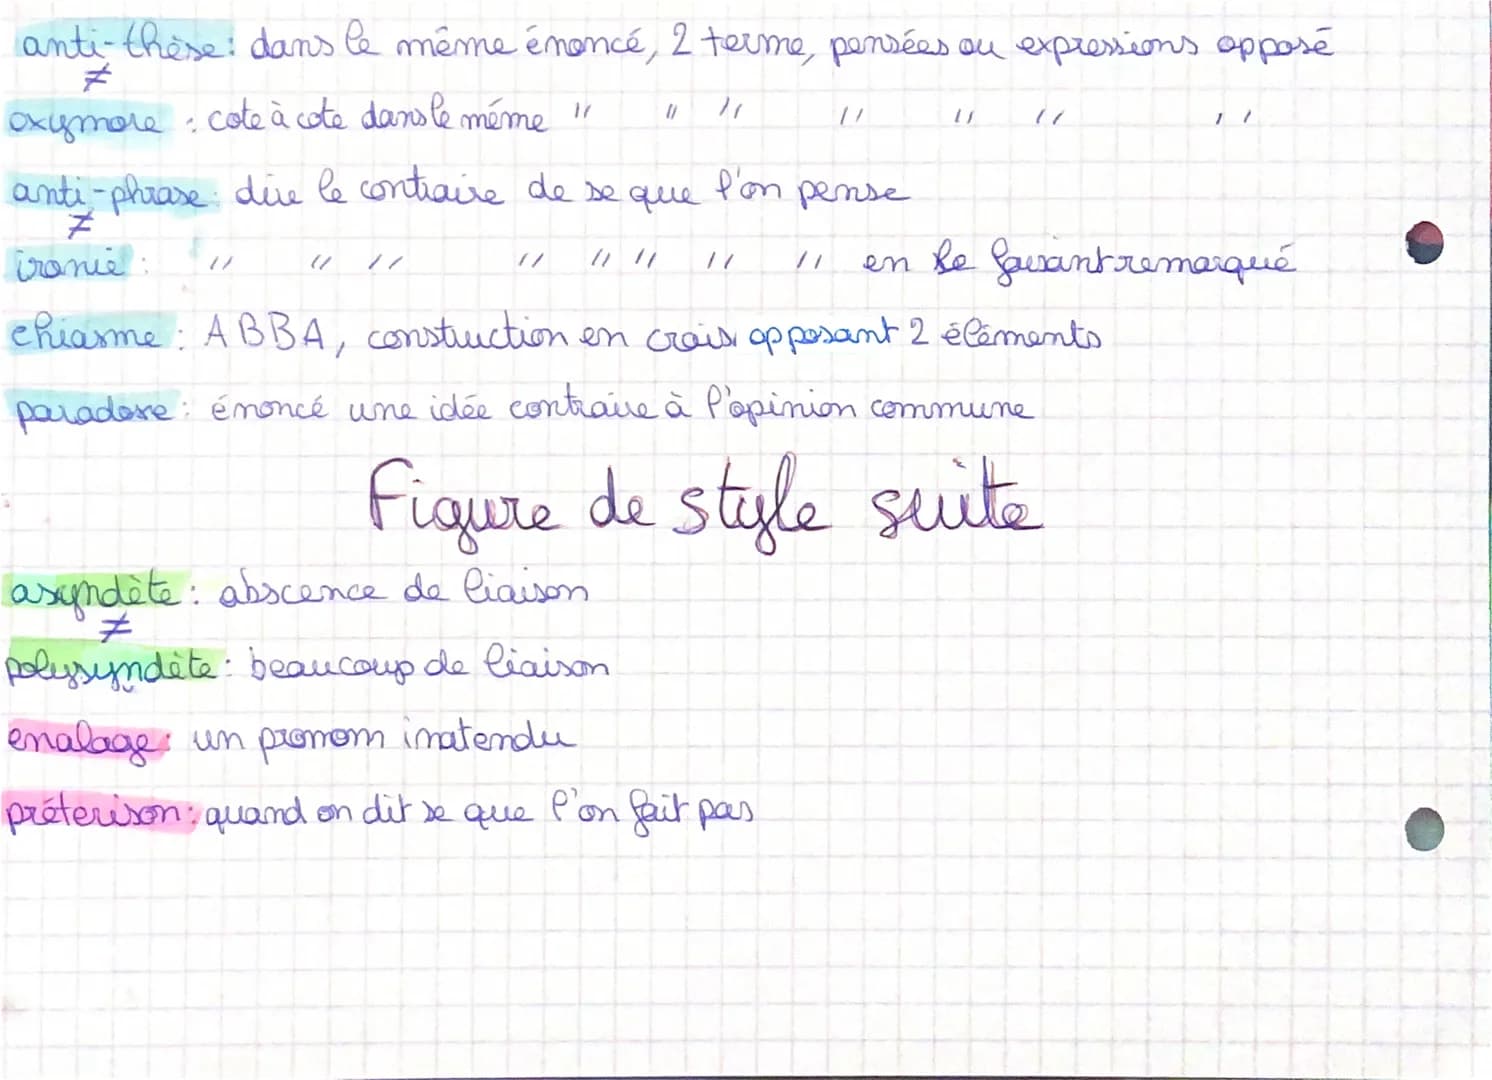 anti-thèse: dans le même énoncé, 2 terme, pensées ou expressions opposé
≠
oxymore : cote à cote dans le même " " " " " " "
anti-phrase: dire le contraire de se que l'on pense
≠
ironie : " " " " " " " " en le faisant remarqué
chiasme : ABBA, constuction en crois opposant 2 éléments
paradoxe : énoncé une idée contraire à l'opinion commune
Figure de style suite
asyndète : abscence de liaison
≠
polysyndète : beaucoup de liaison
enalage : un pronom inatendu
préterison : quand on dit se que l'on fait pas